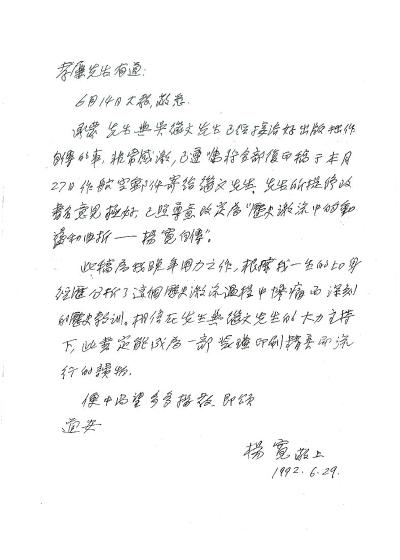 孝廉先生有道:
6月14日大札敬悉.
承蒙先生與吳繼文先生已经接洽好出版拙作
自傳的事,非常感激,已遵嘱将全部復印稿于本月
27日作航空郵件寄给繼文先生.先生所提修改
書名意見極好,已照尊意改定為"歷史激流中的動
蕩和曲折——楊寬自傳".
此稿為我晚年用力之作,根據我一生的切身
经歷分析了這個歷史激流過程中慘痛而深刻
的歷史教訓.相信在先生與繼文先生的大力主持
下,此書定能成為一部印刷精美而流
行的讀物.
便中尚望多多指教.即頌
道安
楊寬敬上
1992.6.29.